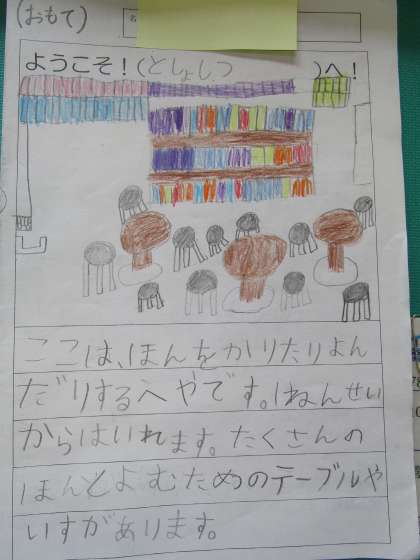 (おもて)
ようこそ!(としょしつ)へ!
ここは、ほんをかりたりよん
だりするへやです。1ねんせい
からはいれます。たくさんの
ほんとよむためのテーブルや
いすがあります。